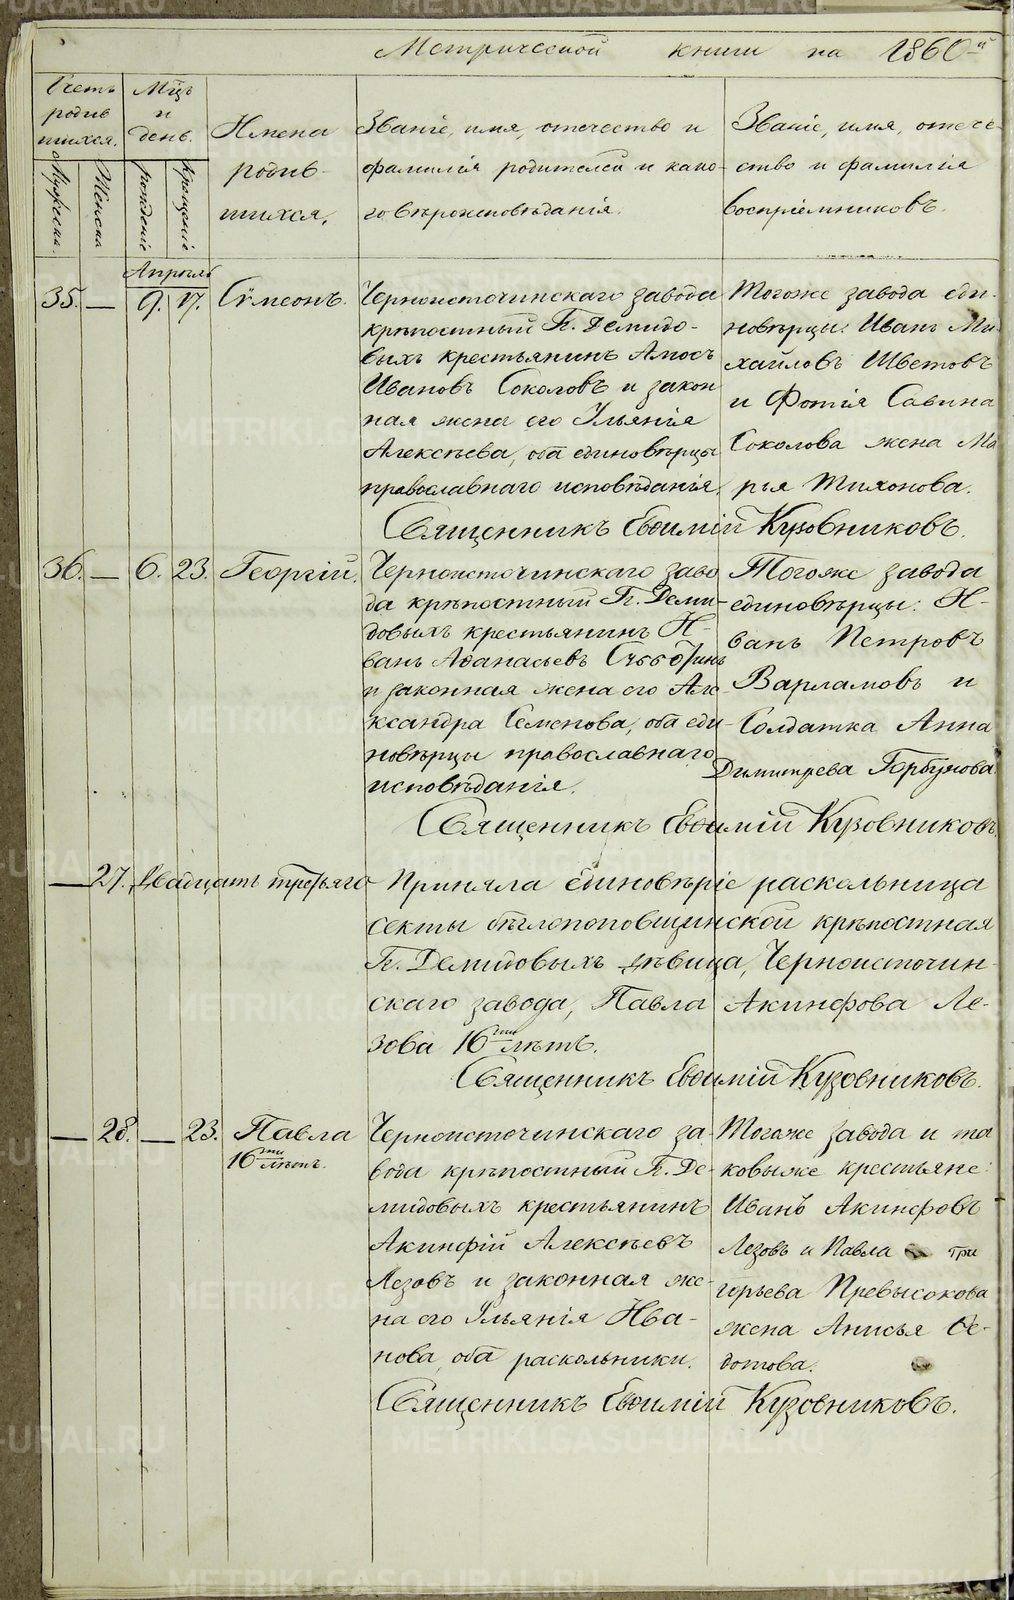 Метрической книги на 1860-й
Счетъ родив шихся.
Мужеска.
Женска
Мцъ и день.
рожденiе
Крещенiе
Имена родив- шихся.
Званiе, имя, отечество и
фамилiя родителей и како-
го вѣроисповѣданiя.
Званiе, имя, отече-
ство и фамилiя
воспрiемниковъ.
Апрѣль
35. — 9. 17. Сѵмеонъ.
Черноисточинскаго завода
крѣпостный Гг. Демидо-
выхъ крестьянинъ Амосъ
Ивановъ Соколовъ и закон
ная жена его Ульянiя
Алексѣева, оба единовѣрцы
православнаго исповѣданiя.
Тогоже завода еди-
новѣрцы: Иванъ Ми-
хайловъ Шветовъ
и Фотiя Савина
Соколова жена Ма
рья Тихонова.
Священникъ Евѳимiй Кузовниковъ.
36. — 6. 23. Георгiй.
Черноисточинскаго заво
да крѣпостный Гг. Деми-
довыхъ крестьянинъ И-
ванъ Аѳанасьевъ
и законная жена его Але-
ксандра Семенова, оба еди-
новѣрцы православнаго
исповѣданiя.
Тогоже завода
единовѣрцы: И-
ванъ Петровъ
Варламовъ и
Солдатка Анна
Димитрева Горбунова.
Священникъ Евѳимiй Кузовниковъ.
— 27. Двадцать третьяго
Приняла единовѣрiе раскольница
секты бѣглопоповщинской крѣпостная
Гг. Демидовыхъ дѣвица, Черноисточин-
скаго завода, Павла Акинфова Ле-
зова 16ти лѣтъ.
Священникъ Евѳимiй Кузовниковъ.
— 28. — 23. Павла
16ти лѣтъ.
Черноисточинскаго за-
вода крѣпостный Гг. Де-
мидовыхъ крестьянинъ
Акинфiй Алексѣевъ
Лезовъ и законная же-
на его Ульянiя Ива-
нова, оба раскольники.
Тогоже завода и та
ковыеже крестьяне:
Иванъ Акинфовъ
Лезовъ и Павла Гри
горьева Превысокова
жена Анисья Ѳе-
дотова.
Священникъ Евѳимiй Кузовниковъ.
METRIKI.GASO-URAL.RU